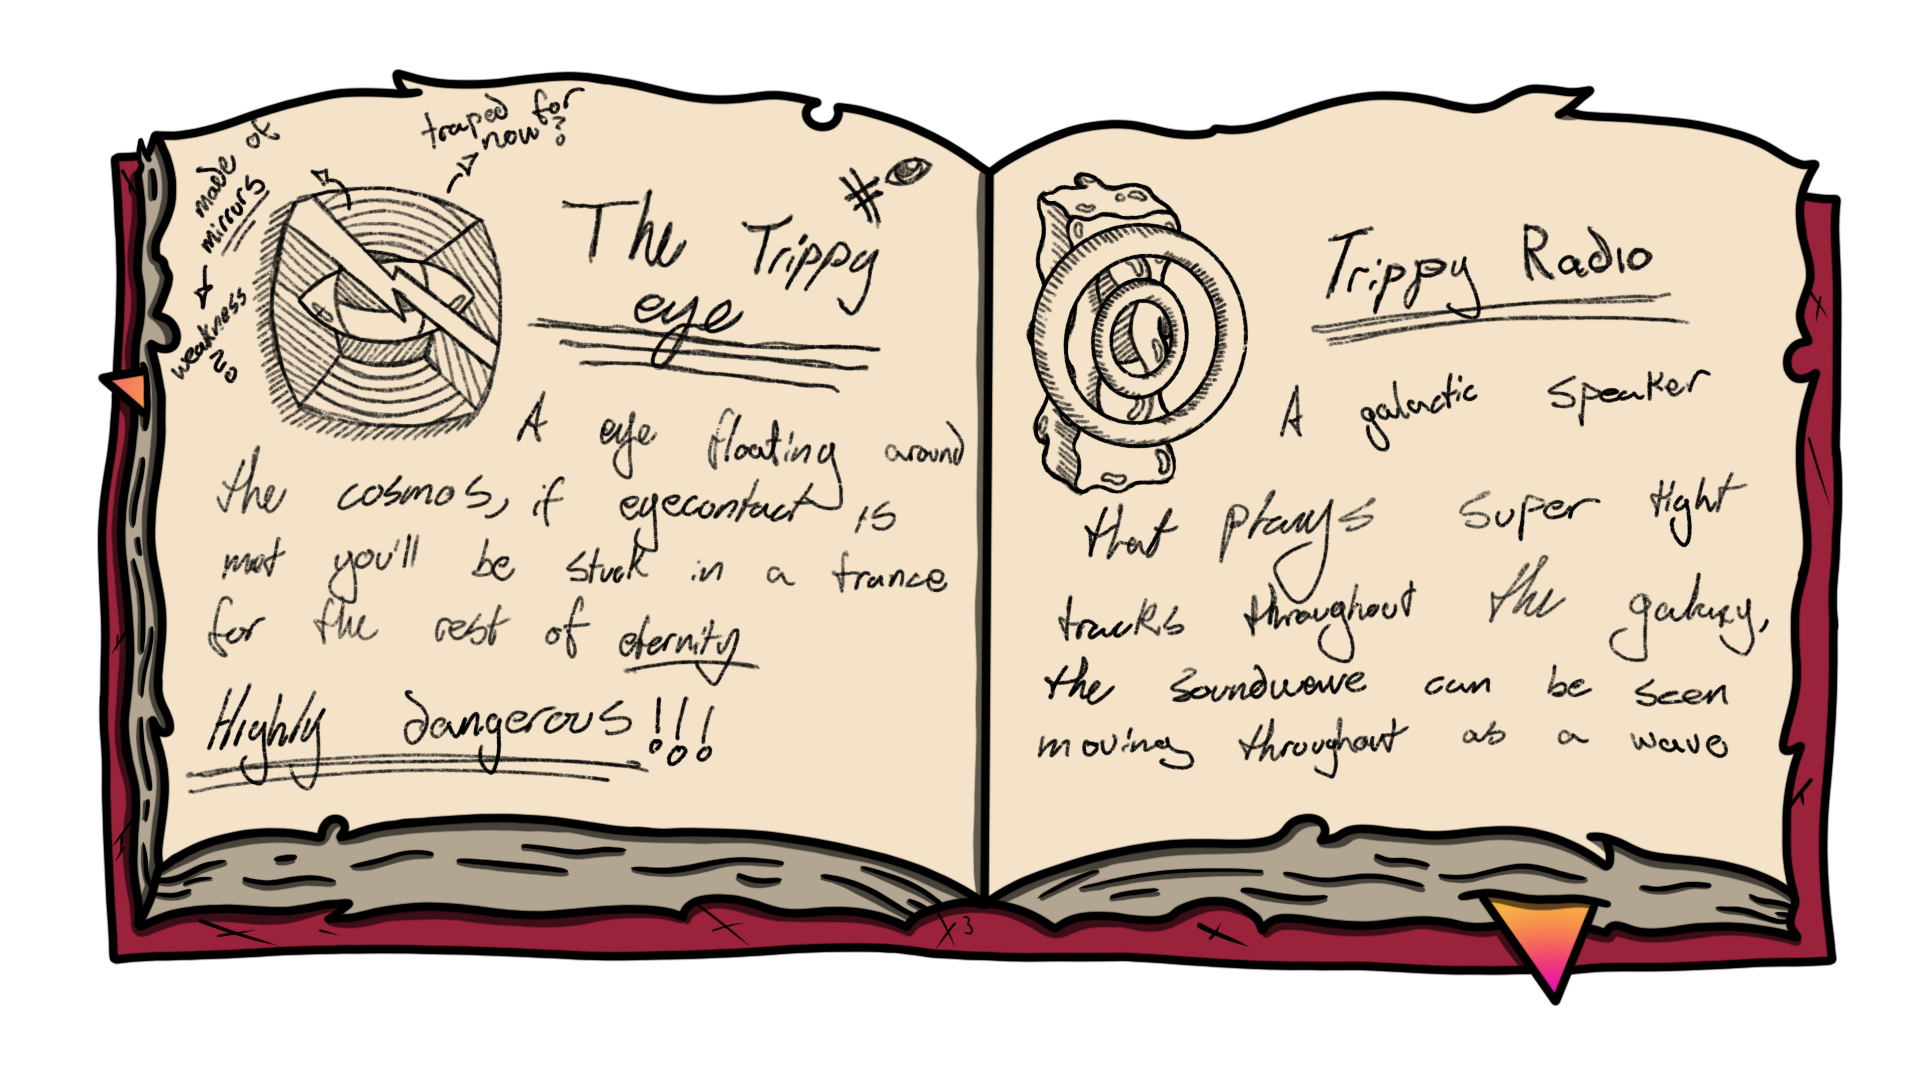 made of
mirrors
weakness
??
traped for
now?
#
The Trippy
eye
A eye floating around
the cosmos, if eyecontact is
met you'll be stuck in a trance
for the rest of eternity
Highly dangerous!!!
Trippy Radio
A galactic speaker
that plays super tight
tracks throughout the galaxy,
the soundwave can be seen
moving throughout as a wave